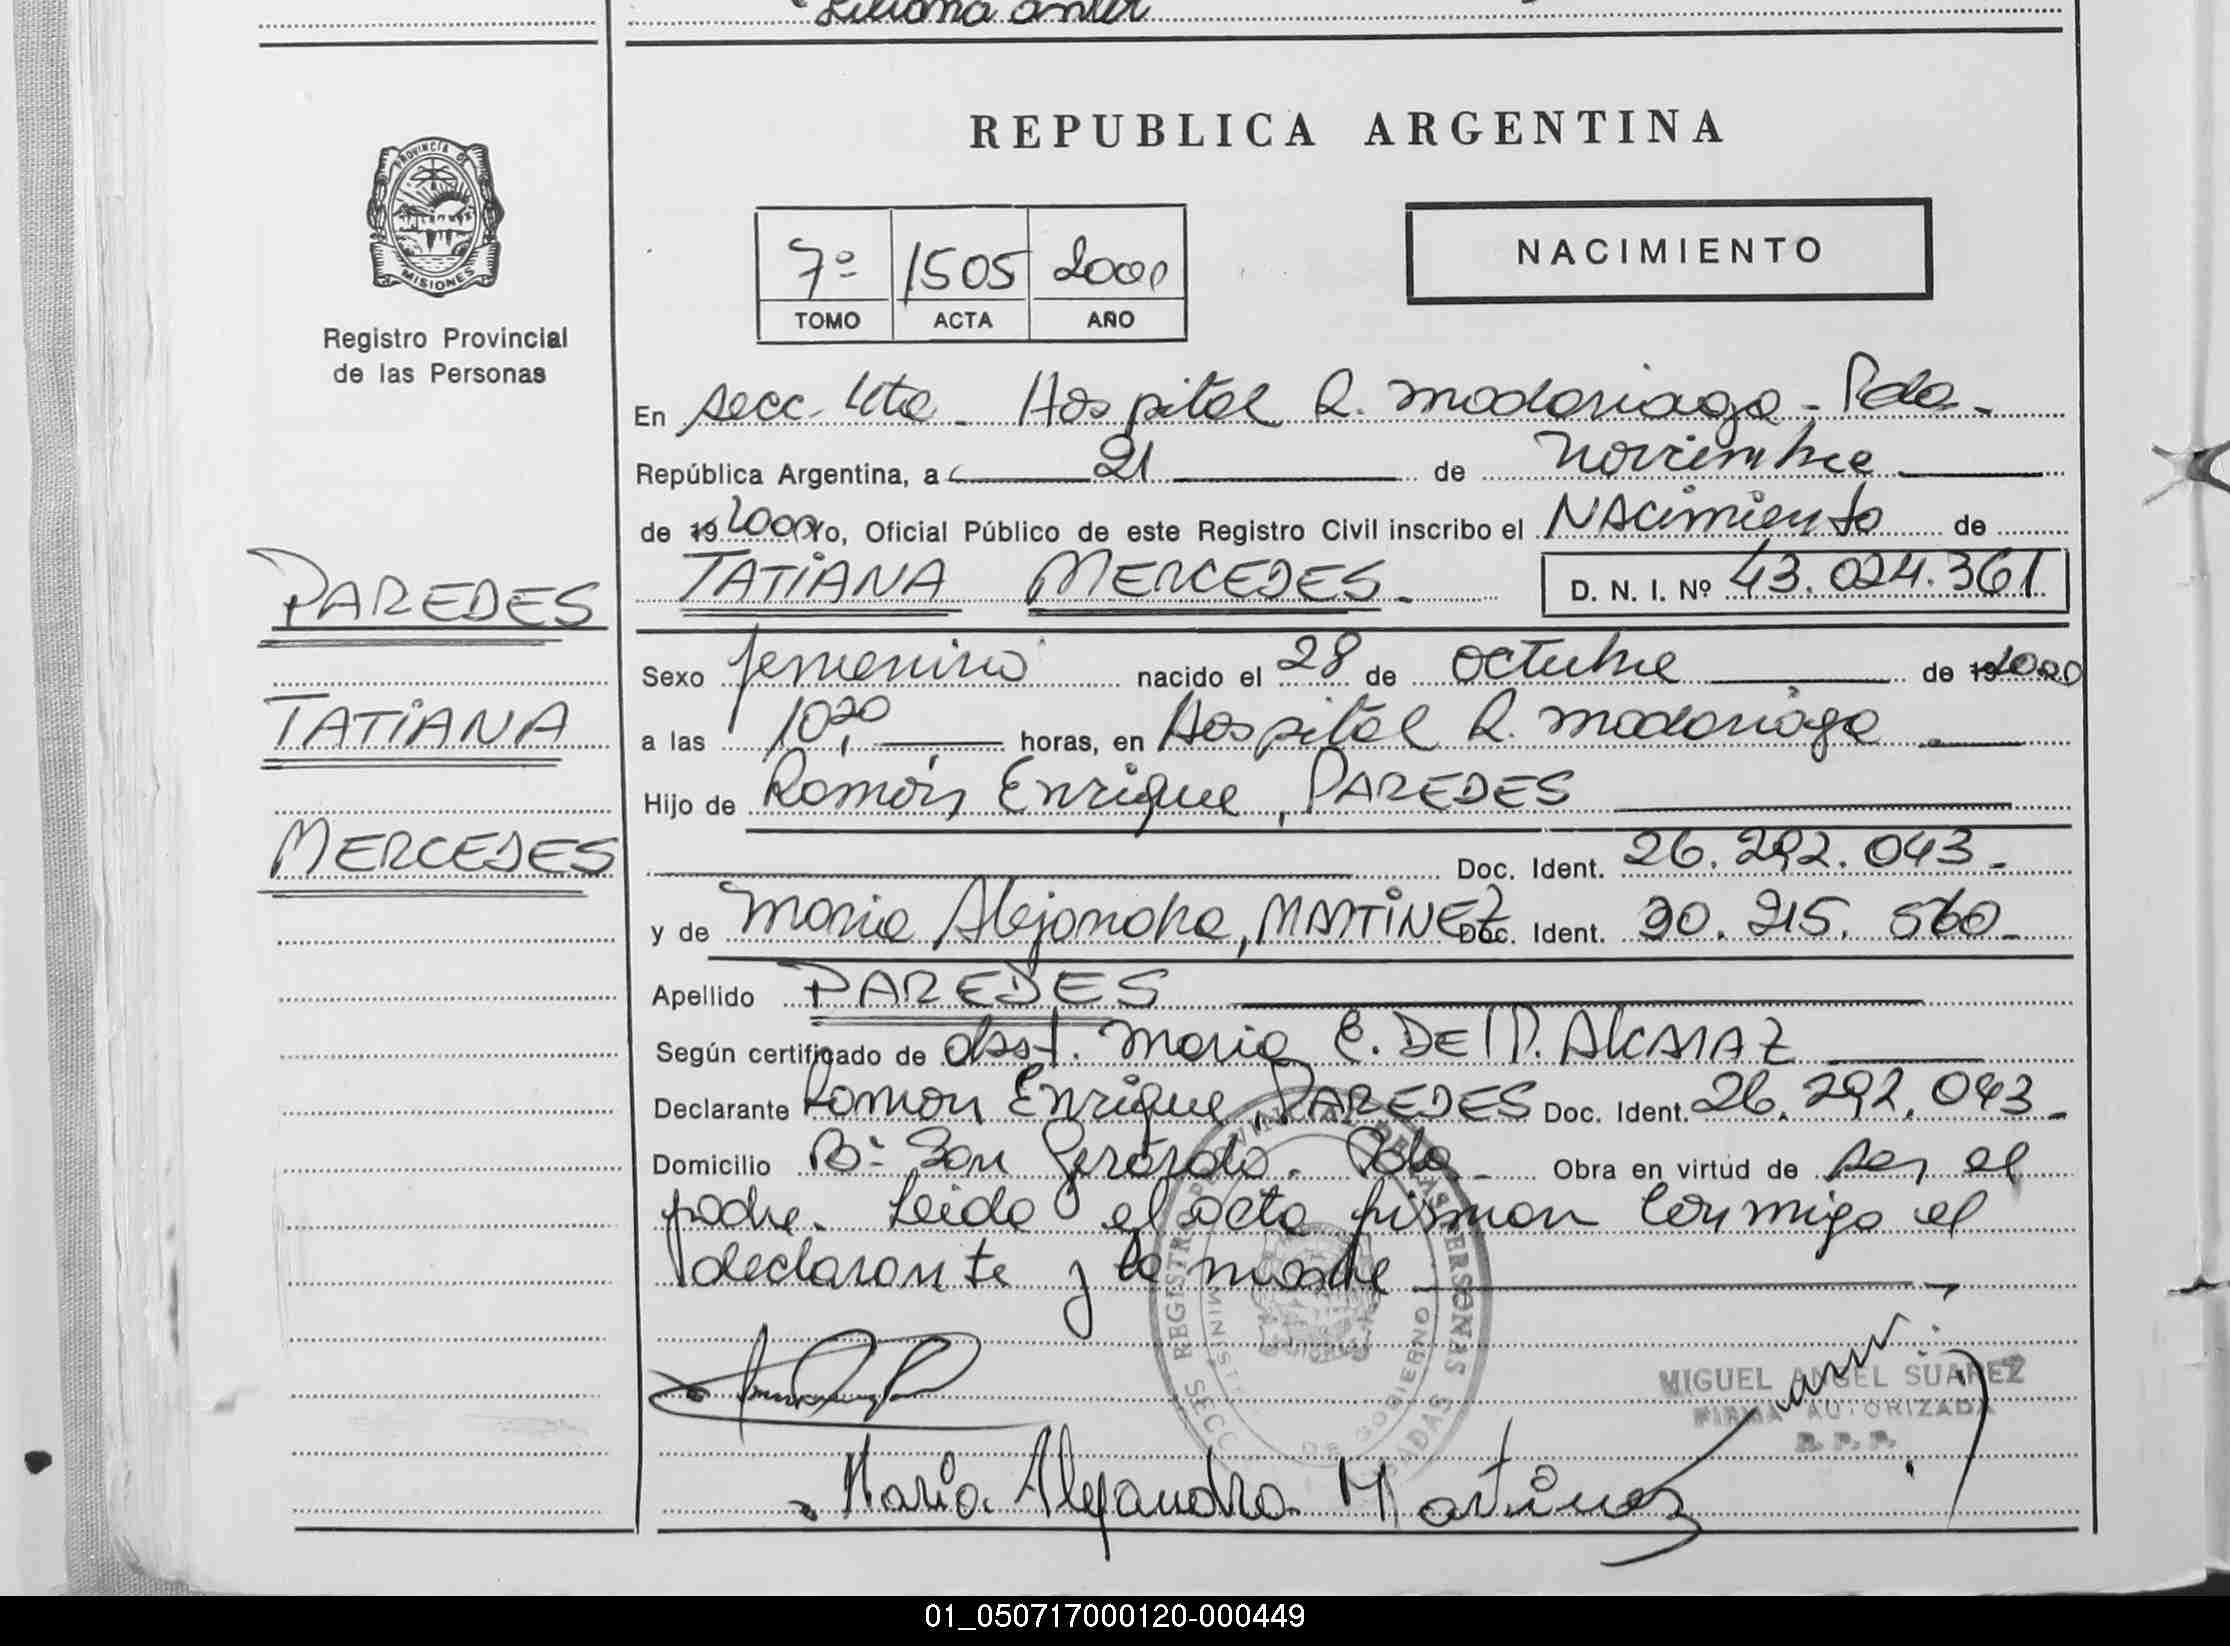 Liliana
REPUBLICA ARGENTINA
PROVINCIA DE MISIONES
Registro Provincial
de las Personas
7º 1505 2000
TOMO ACTA AÑO
NACIMIENTO
En secc. 4ta. Hospital R. Madariaga - Pdas.
República Argentina, a 21 de Noviembre
de 19 2000 Yo, Oficial Público de este Registro Civil inscribo el NAcimiento de
TATIANA MERCEDES. D. N. I. Nº 43.024.361
PAREDES
TATIANA
MERCEDES
Sexo femenino nacido el 28 de octubre de 19 2000
a las 10,20 horas, en Hospital R. Madariaga
Hijo de Ramón Enrique, PAREDES
Doc. Ident. 26.292.043.
y de Maria Alejandra, MARTINEZ Doc. Ident. 30.215.560
Apellido PAREDES
Según certificado de obst. Maria E. De M. AlcARAZ
Declarante Ramon Enrique, PAREDES Doc. Ident. 26.292.043.
Domicilio Bº San Gerardo. Pdas. Obra en virtud de ser el
padre. Leida el acta firman conmigo el
declarante y la madre
REGISTRO PROVINCIAL DE LAS PERSONAS
MINISTERIO DE GOBIERNO
MIGUEL ANGEL SUAREZ
FIRMA AUTORIZADA
R. P. P.
Maria Alejandra Martinez
01_050717000120-000449